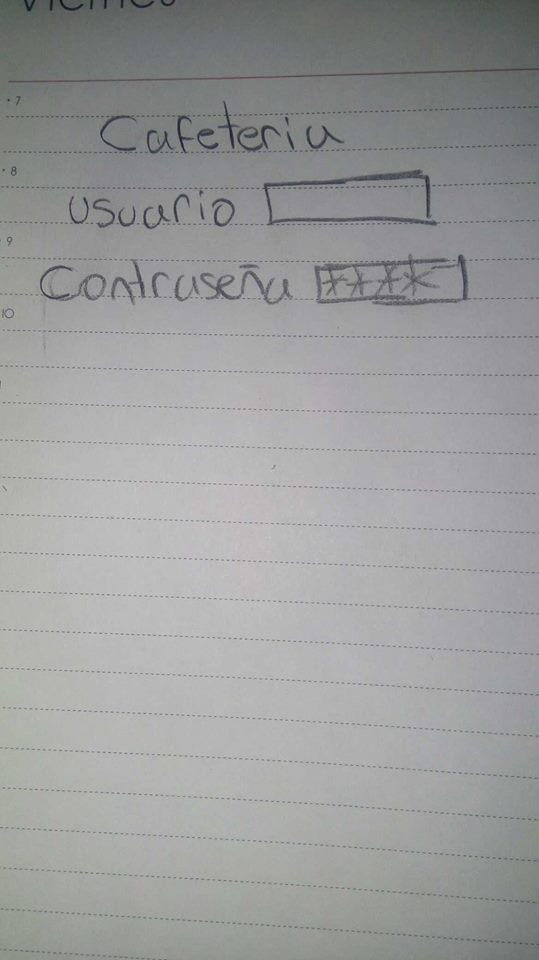 7
Cafeteria
8
usuario
9
Contraseña ****
10